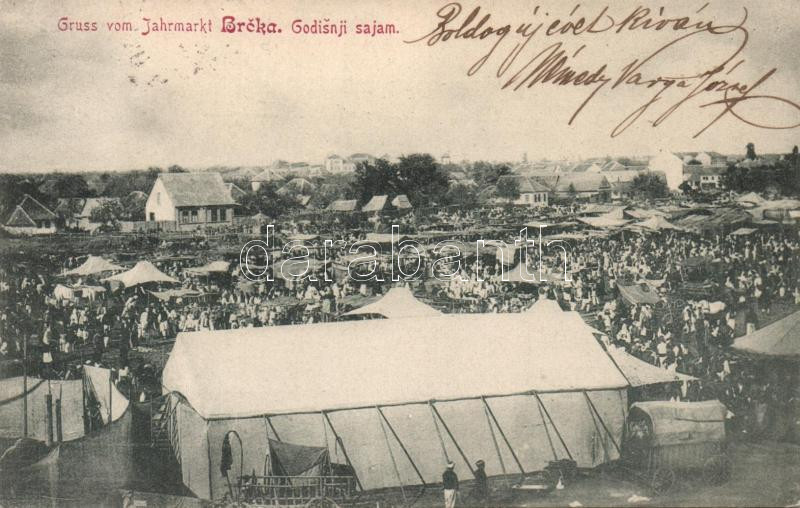 Gruss vom Jahrmarkt Brčka. Godišnji sajam.
Boldog újévet kíván
Varga József
darabanth